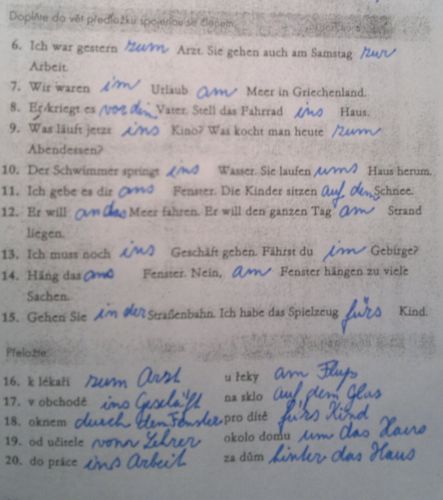 Doplňte do vět předložku spojenou se členem
6. Ich war gestern zum Arzt. Sie gehen auch am Samstag zur
Arbeit.
7. Wir waren im Urlaub am Meer in Griechenland.
8. Er kriegt es vor dem Vater. Stell das Fahrrad ins Haus.
9. Was läuft jetzt ins Kino? Was kocht man heute zum
Abendessen?
10. Der Schwimmer springt ins Wasser. Sie laufen ums Haus herum.
11. Ich gebe es dir ans Fenster. Die Kinder sitzen auf dem Schnee.
12. Er will an das Meer fahren. Er will den ganzen Tag am Strand
liegen.
13. Ich muss noch ins Geschäft gehen. Fährst du im Gebirge?
14. Häng das ans Fenster. Nein, am Fenster hängen zu viele
Sachen.
15. Gehen Sie in der Straßenbahn. Ich habe das Spielzeug fürs Kind.
Přeložte:
16. k lékaři zum Arzt u řeky am Fluß
17. v obchodě ins Geschäft na sklo auf dem Glas
18. oknem durch dem Fenster pro dítě fürs Kind
19. od učitele vom Lehrer okolo domu um das Haus
20. do práce ins Arbeit za dům hinter das Haus